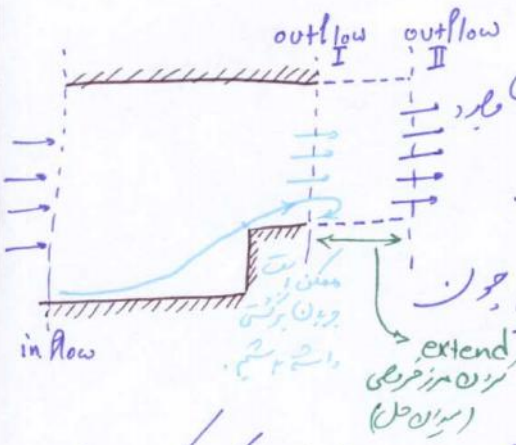 outflow
I
outflow
II
چون
inflow
ممکن است
جریان برگشتی
داشته باشیم.
extend
کردن مرز خروجی
(میدان حل)